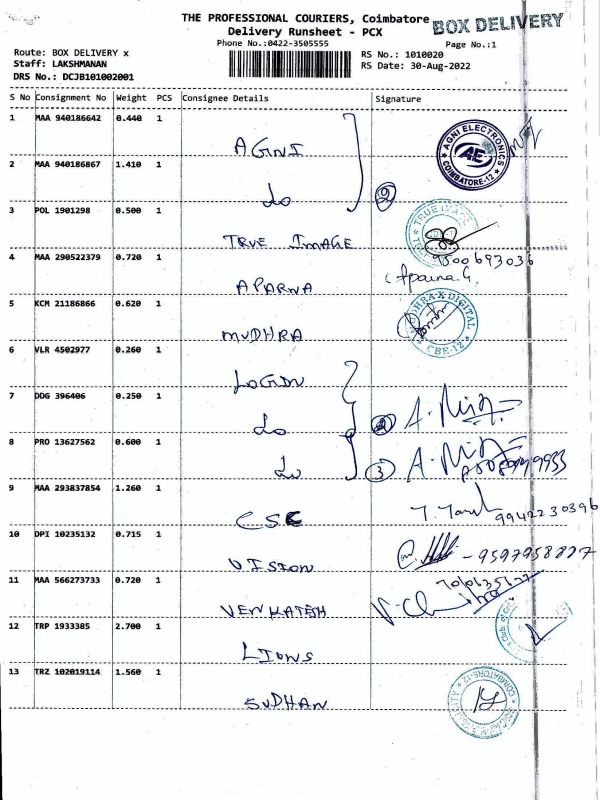 THE PROFESSIONAL COURIERS, Coimbatore
BOX DELIVERY
Delivery Runsheet - PCX
Phone No.:0422-3505555
Page No.:1
Route: BOX DELIVERY x
RS No.: 1010020
Staff: LAKSHMANAN
RS Date: 30-Aug-2022
DRS No.: DCJB101002001
S No Consignment No Weight PCS Consignee Details Signature
1 MAA 940186642 0.440 1
AGNI
AGNI ELECTRONICS
AE
COIMBATORE-12
2 MAA 940186867 1.410 1
do
2
3 POL 1901298 0.500 1
TRUE IMAGE
TRUE IMAGE
4 MAA 290522379 0.720 1
9500693036
APARNA
Aparna.G.
5 KCM 21186866 0.620 1
MUDHRA
MUDHRA DIGITAL
CBE-12
6 VLR 4502977 0.260 1
LOGIN
7 DDG 396406 0.250 1
do
2
8 PRO 13627562 0.600 1
do
3
9 MAA 293837854 1.260 1
CSC
9942230396
10 DPI 10235132 0.715 1
VISION
11 MAA 566273733 0.720 1
VENKATESH
12 TRP 1933385 2.700 1
LIONS
13 TRZ 102019114 1.560 1
SUDHAN
COIMBATORE-12